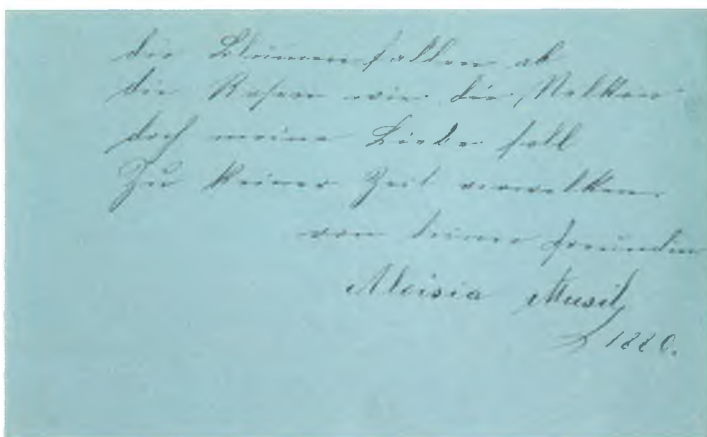 die Blumen fallen ab
die Rosen wie die Nelken
doch meine Liebe soll
Zu keiner Zeit verwelken.
von deiner Freundin
Aloisia Musil
1880.